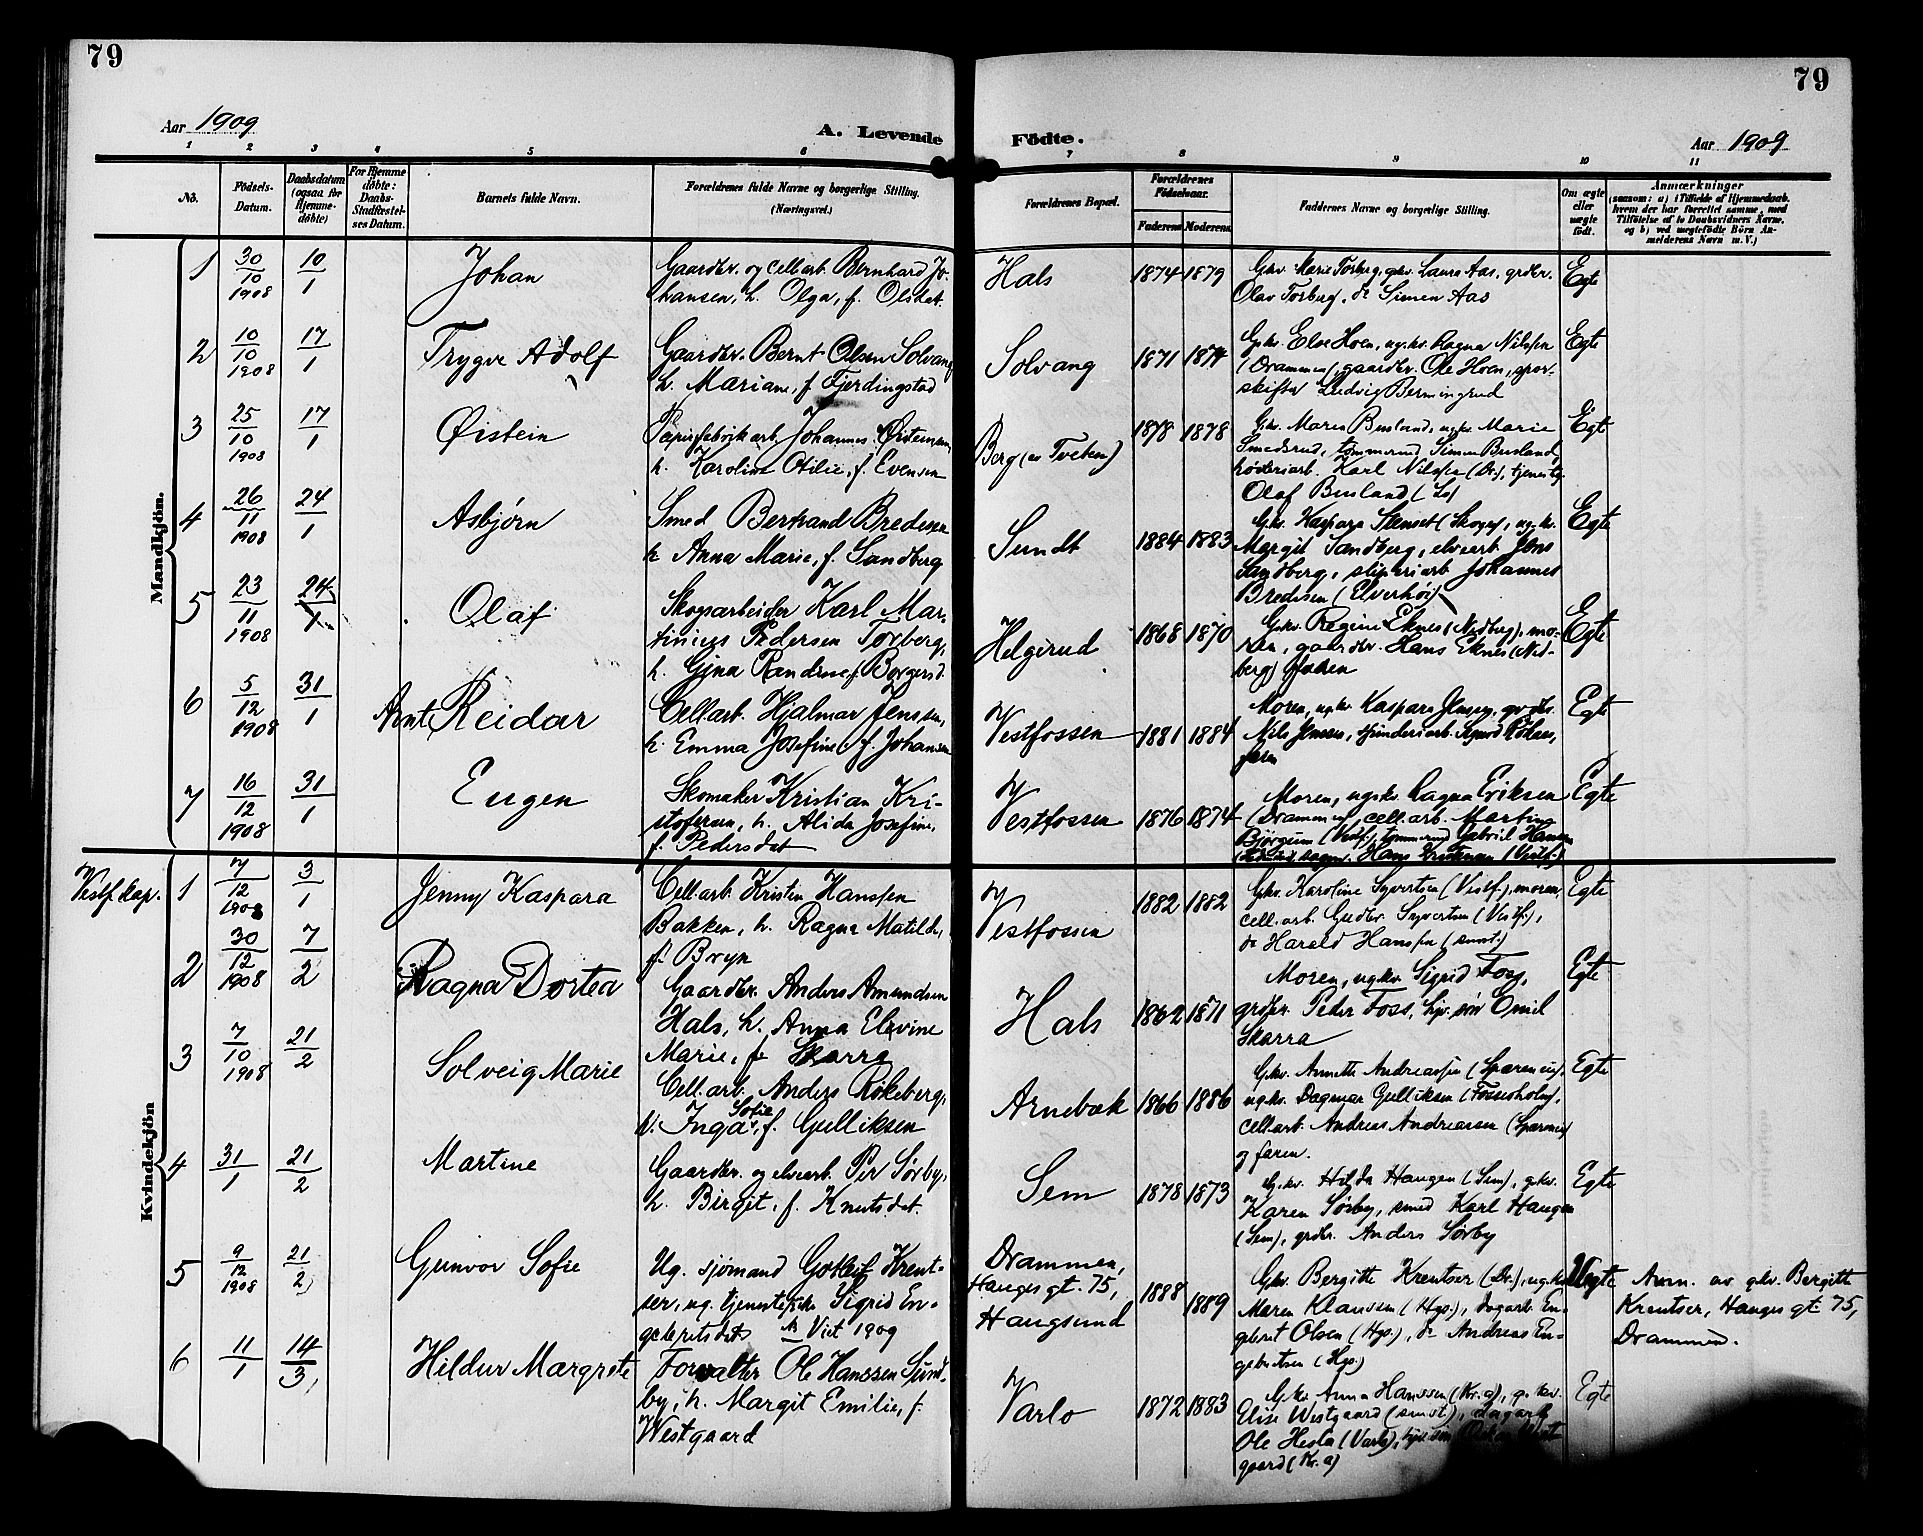 79
79
Aar 1909
A. Levende
Födte.
Aar 1909
1 2 3 4 5 6 7 8 9 10 11
No.
Födsels-
Datum.
Daabsdatum
(ogsaa for
Hjemme-
döbte)
For Hjemme
döbte:
Daabs-
Stadfæstel-
ses Datum.
Barnets fulde Navn.
Forældrenes fulde Navne og borgerlige Stilling.
(Næringsvei.)
Forældrenes Bopæl.
Forældrenes
Födselsaar.
Faderens Moderens
Faddernes Navne og borgerlige Stilling.
Om ægte
eller
uægte
födt.
Anmærkninger
(saasom: a) i Tilfælde af Hjemmedaab,
hvem der har forrettet samme, med
Tilföielse af to Daabsvidners Navne,
og b) ved uægtefödte Börn An-
melderens Navn m. V.)
Mandkjön.
1
30/10 1908
10/1
Johan
Gaardbr. og cell.arb. Bernhard Jo-
hansen, h. Olga, f. Olsdat.
Hals
1874 1879
Gkv. Marie Torberg, gkv. Laura Aas, grdbr.
Olav Torberg, do Simen Aas
Egte
2
10/10 1908
17/1
Trygve Adolf
Gaardbr. Bernt Olsen Solvang
h. Mariane, f. Fjerdingstad
Solvang
1871 1874
Gkv. Else Hoen, ugkv. Ragna Nilssen
(Drammen), gaardbr. Ole Hoen, spor-
skifter Ludvig Bermingrud
Egte
3
25/10 1908
17/1
Øistein
Papirfabrikarb. Johannes Østensen,
h. Karoline Otilie, f. Evensen
Berg (es Tveten)
1878 1878
Gkv. Maren Busland, ugkv. Marie
Smedsrud, tømmermd Simen Busland,
Karl Nilssen (Dr.), tjenestg.
Olaf Busland
Egte
4
26/11 1908
24/1
Asbjørn
Smed Bertrand Bredesen
h. Anna Marie, f. Sandberg
Sundt
1884 1883
Gkv. Kaspara Stenset (Skoger), ugkv.
Margit Sandberg, elvearb. Jens
Sandberg, sliperiarb. Johannes
Bredesen (Elverhøi)
Egte
5
23/11 1908
24/1
Olaf
Skogsarbeider Karl Mar-
tinius Pedersen Torberg,
h. Gina Randine f. Borgersd.
Helgerud
1868 1870
Gkv. Regine Eknes (Nedberg), mo-
ren, gaardbr. Hans Eknes (Ned-
berg) faren
Egte
6
5/12 1908
31/1
Arnt Reidar
Cell.arb. Hjalmar Jenssen,
h. Emma Josefine, f. Johansen
Vestfossen
1881 1884
Moren, ugkv. Kaspara Jenssen, grdbr.
Nils Jenssen, spinderiarb. Sigurd
faren
Egte
7
16/12 1908
31/1
Eugen
Skomaker Kristian Kri-
stofersen, h. Alida Josefine,
f. Pedersdat
Vestfossen
1876 1874
Moren, ugkv. Ragna Eriksen
(Drammen), cell.arb. Martin
Bjørgum (Vestf.), tømmermd Gabriel Hansen
Hans Kristensen (Vestf.)
Egte
Kvindekjön
Vestf. kap.
1
7/12 1908
3/1
Jenny Kaspara
Cell.arb. Kristen Hanssen
Bakken, h. Ragna Matilde,
f. Bryn
Vestfossen
1882 1882
Gkv. Karoline Syvertsen (Vestf.), moren,
cell.arb. Gudbr. Syvertsen (Vestf.),
do Harald Hanssen (smst.)
Egte
2
30/12 1908
7/2
Ragna Dortea
Gaardbr. Anders Amundsen
Hals, h. Anna Elevine
Marie, f. Skarra
Hals
1862 1871
Moren, ugkv. Sigrid Foss,
grdbr. Peder Foss, hjv. søn Emil
Skarra
Egte
3
7/10 1908
21/2
Solveig Marie
Cell.arb. Anders Røkeberg,
h. Inga Sofie, f. Gulliksen
Arnebæk
1866 1886
Gkv. Annette Andreassen (Sparenes),
ugkv. Dagmar Gulliksen (Fossesholm),
cell.arb. Andreas Andreassen (Sparenes)
og faren.
Egte
4
31/1
21/2
Martine
Gaardbr. og elvearb. Per Sørby,
h. Birgit, f. Knutsdat.
Sem
1878 1873
Gkv. Hilda Haugen (Sem), gkv.
Karen Sørby, smed Karl Haugen
(Sem), grdbr. Anders Sørby
Egte
5
9/12 1908
21/2
Gunvor Sofie
Ug. sjømand Gotleif Krent-
ser, ug. tjenestepike Sigrid En-
gebretsdat Viet 1909
Drammen,
Hauges gt. 75,
Haugsund
1888 1889
Gkv. Bergitte Krentser (Dr.), ugkv.
Maren Klaussen (Hgs.), dagarb. En-
gebret Olsen (Hgs.), do Andreas En-
gebretsen (Hgs.)
Uegte
Anm. av gkv. Bergitte
Krentser, Hauges gt. 75,
Drammen.
6
11/1
14/3
Hildur Margrete
Forvalter Ole Hanssen Sund-
by, h. Margit Emilie, f.
Westgaard
Varlo
1872 1883
Gkv. Anna Hanssen (Kr.a), gkv.
Elise Westgaard (smst.), dagarb.
Ole Hesla (Varlo),
gaard (Kr.a)
Egte